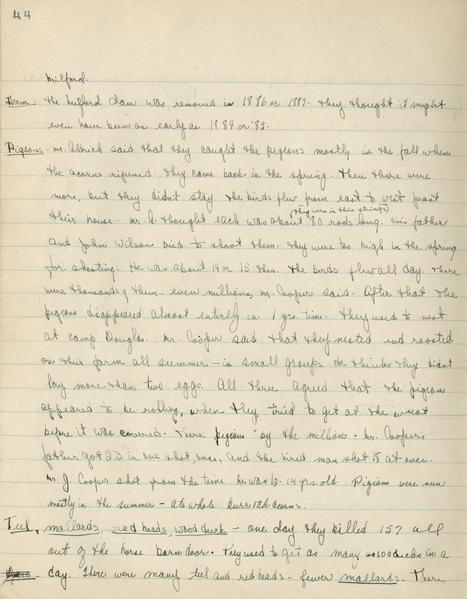 44
Milford.
Dam: The Milford dam was removed in 1886 or 1887. They thought it might
even have been as early as 1884 or '85.
Pigeons - Mr. Aldrich said that they caught the pigeons mostly in the fall when
the acorns ripened. They came back in the spring. Then there were
more, but they didn't stay. The birds flew from east to west past
(they were in their strings)
their house. Mr. A. thought each was about 80 rods long. His father
and John Wilson tried to shoot them. They were too high in the spring
for shooting. He was about 14 or 15 then. The birds flew all day. There
were thousands of them - even millions, Mr. Cooper said. After that the
pigeons disappeared almost entirely in 1 yrs. time. They used to nest
at Camp Douglas. Mr. Cooper said that they nested and roosted
on their farm all summer - in small groups. He thinks they didn't
lay more than two eggs. All three agreed that the pigeons
appeared to be rolling, when they tried to get at the wheat
before it was covered. Were pigeons by the millions. Mr. Cooper's
father got 23 in one shot, once, and the hired man shot 18 at once.
Mr. J. Cooper shot from the time he was 12-14 yrs. old. Pigeons were seen
mostly in the summer - ate whole burr oak acorns.
Teal, mallards, red heads, wood duck - one day they killed 157 all
out of the horse barn door. They used to get as many as 100 ducks in a
day. There were many teal and red heads - fewer mallards. There